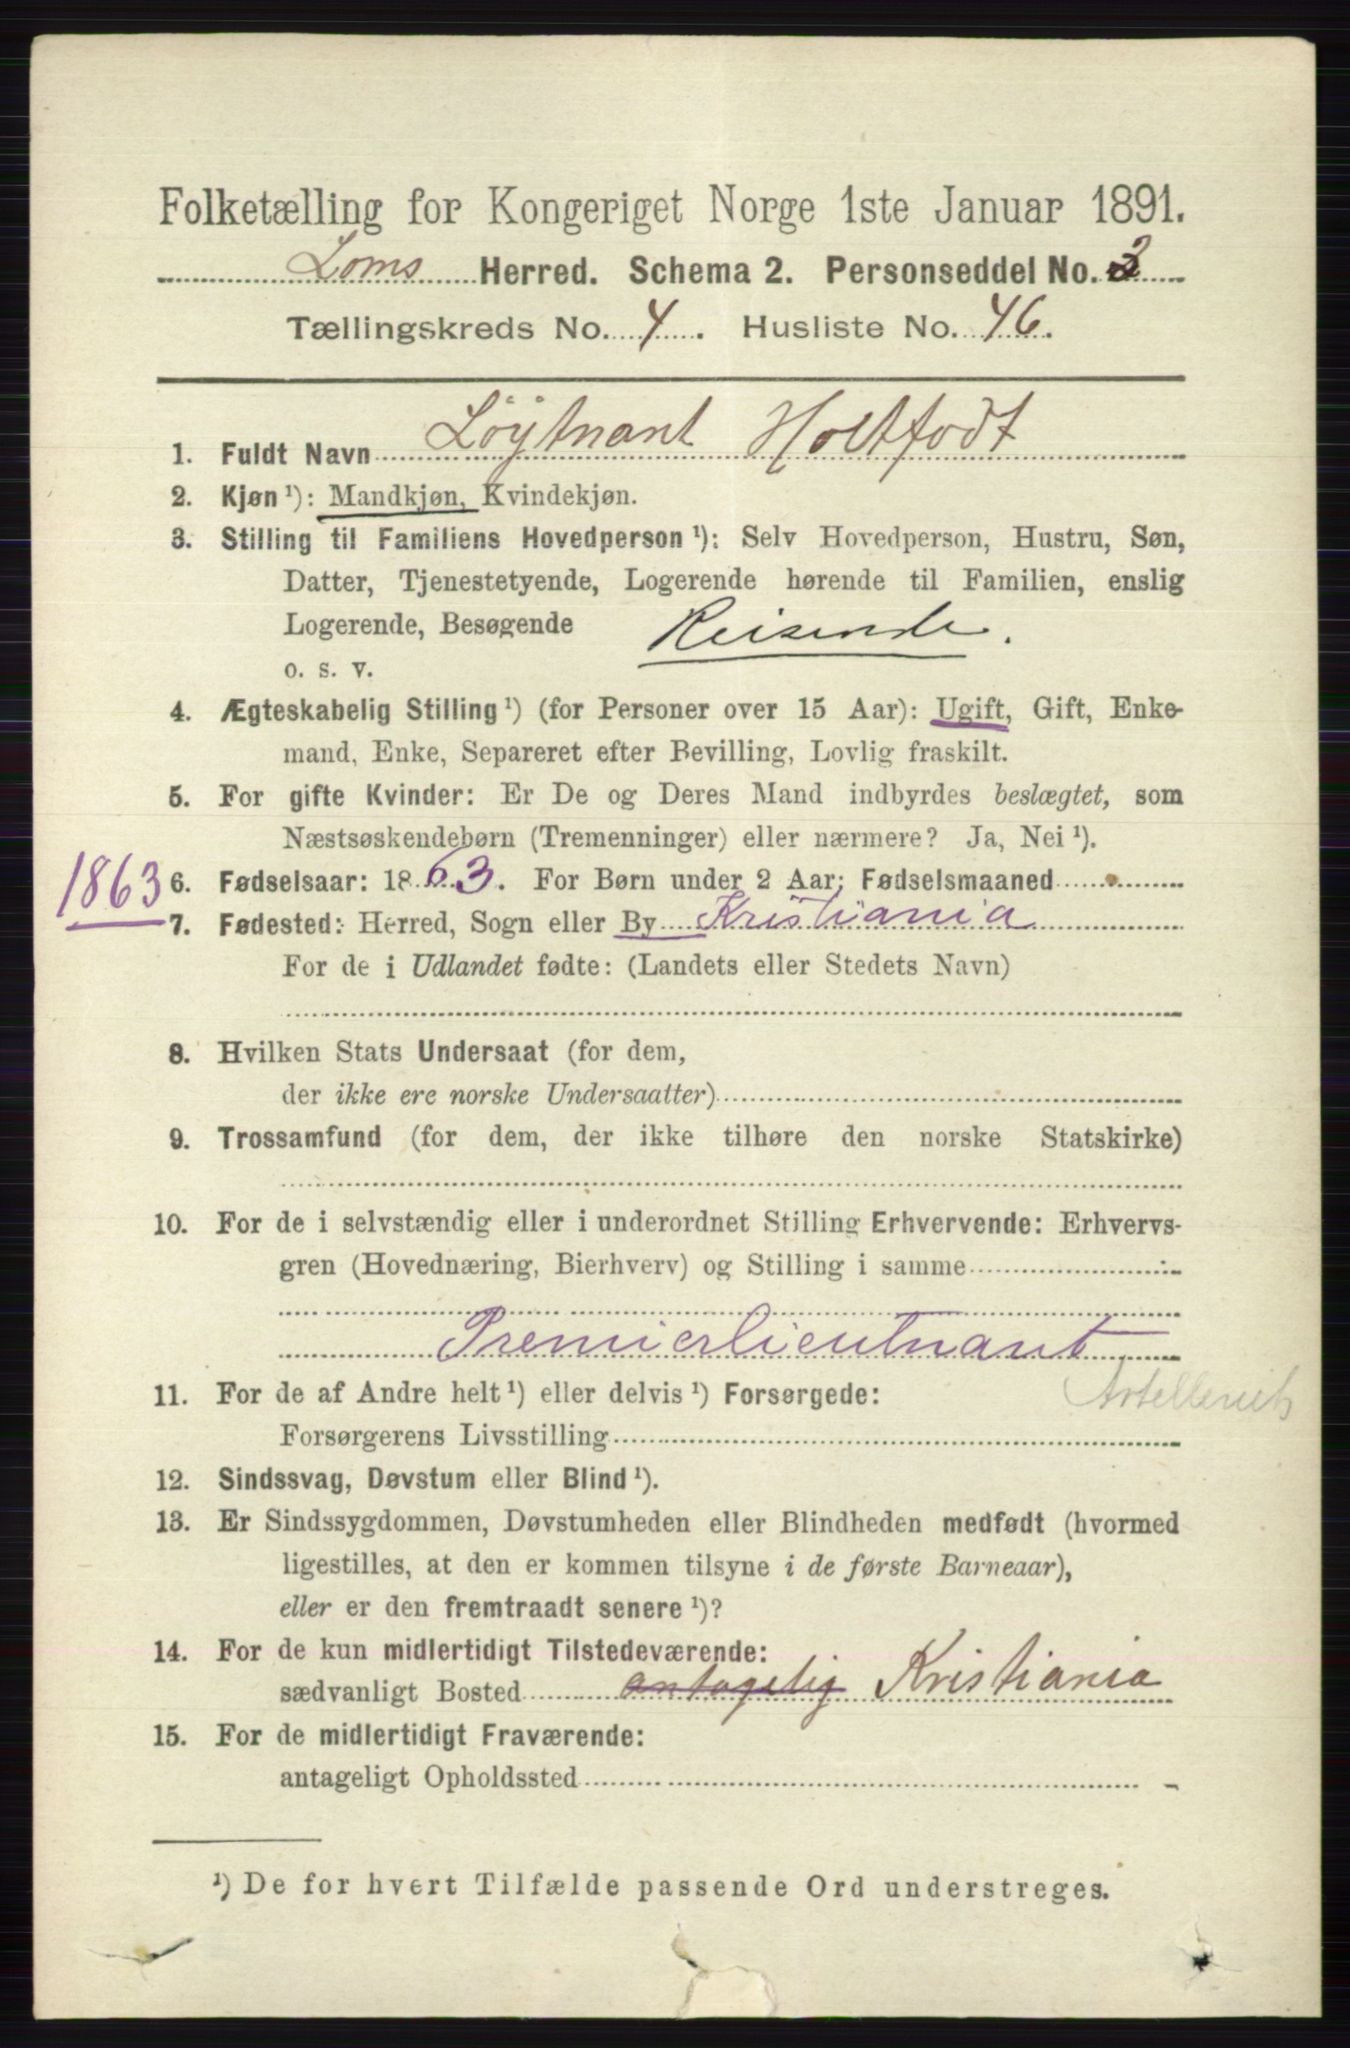 Folketælling for Kongeriget Norge 1ste Januar 1891.
Loms Herred. Schema 2. Personseddel No. 3
Tællingskreds No. 4. Husliste No. 46.
1. Fuldt Navn Løytnant Holtfodt
2. Kjøn ¹): Mandkjøn, Kvindekjøn.
3. Stilling til Familiens Hovedperson ¹): Selv Hovedperson, Hustru, Søn,
Datter, Tjenestetyende, Logerende hørende til Familien, enslig
Logerende, Besøgende Reisende.
o. s. v.
4. Ægteskabelig Stilling ¹) (for Personer over 15 Aar): Ugift, Gift, Enke-
mand, Enke, Separeret efter Bevilling, Lovlig fraskilt.
5. For gifte Kvinder: Er De og Deres Mand indbyrdes beslægtet, som
Næstsøskendebørn (Tremenninger) eller nærmere? Ja, Nei ¹).
1863 6. Fødselsaar: 1863. For Børn under 2 Aar: Fødselsmaaned
7. Fødested: Herred, Sogn eller By Kristiania
For de i Udlandet fødte: (Landets eller Stedets Navn)
8. Hvilken Stats Undersaat (for dem,
der ikke ere norske Undersaatter)
9. Trossamfund (for dem, der ikke tilhøre den norske Statskirke)
10. For de i selvstændig eller i underordnet Stilling Erhvervende: Erhvervs-
gren (Hovednæring, Bierhverv) og Stilling i samme
Premierlieutnant
11. For de af Andre helt ¹) eller delvis ¹) Forsørgede:
Forsørgerens Livsstilling
12. Sindssvag, Døvstum eller Blind ¹).
13. Er Sindssygdommen, Døvstumheden eller Blindheden medfødt (hvormed
ligestilles, at den er kommen tilsyne i de første Barneaar),
eller er den fremtraadt senere ¹)?
14. For de kun midlertidigt Tilstedeværende:
sædvanligt Bosted antagelig Kristiania
15. For de midlertidigt Fraværende:
antageligt Opholdssted
¹) De for hvert Tilfælde passende Ord understreges.